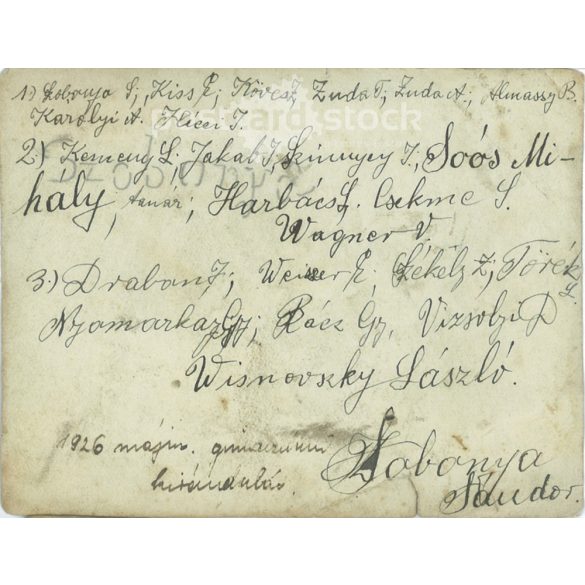 1.) Zobonya S; Kiss E; Kövesz, Zuda T; Zuda A; Almassy B.
Karolyi A. J.
2.) Kemeny L; Jakab J, Szinnyey I, Soós Mi-
haly, tanár; Harbács L. Csekme S.
Wagner V.
3.) Draban J; Weisser E; Székely Z; Török L
Nyomarkay Gy; Rácz Gy, Vizsolyi D
Wisnovszky László.
1926 május. gimnáziumi
kirándulás.
Zobonya
Sándor.